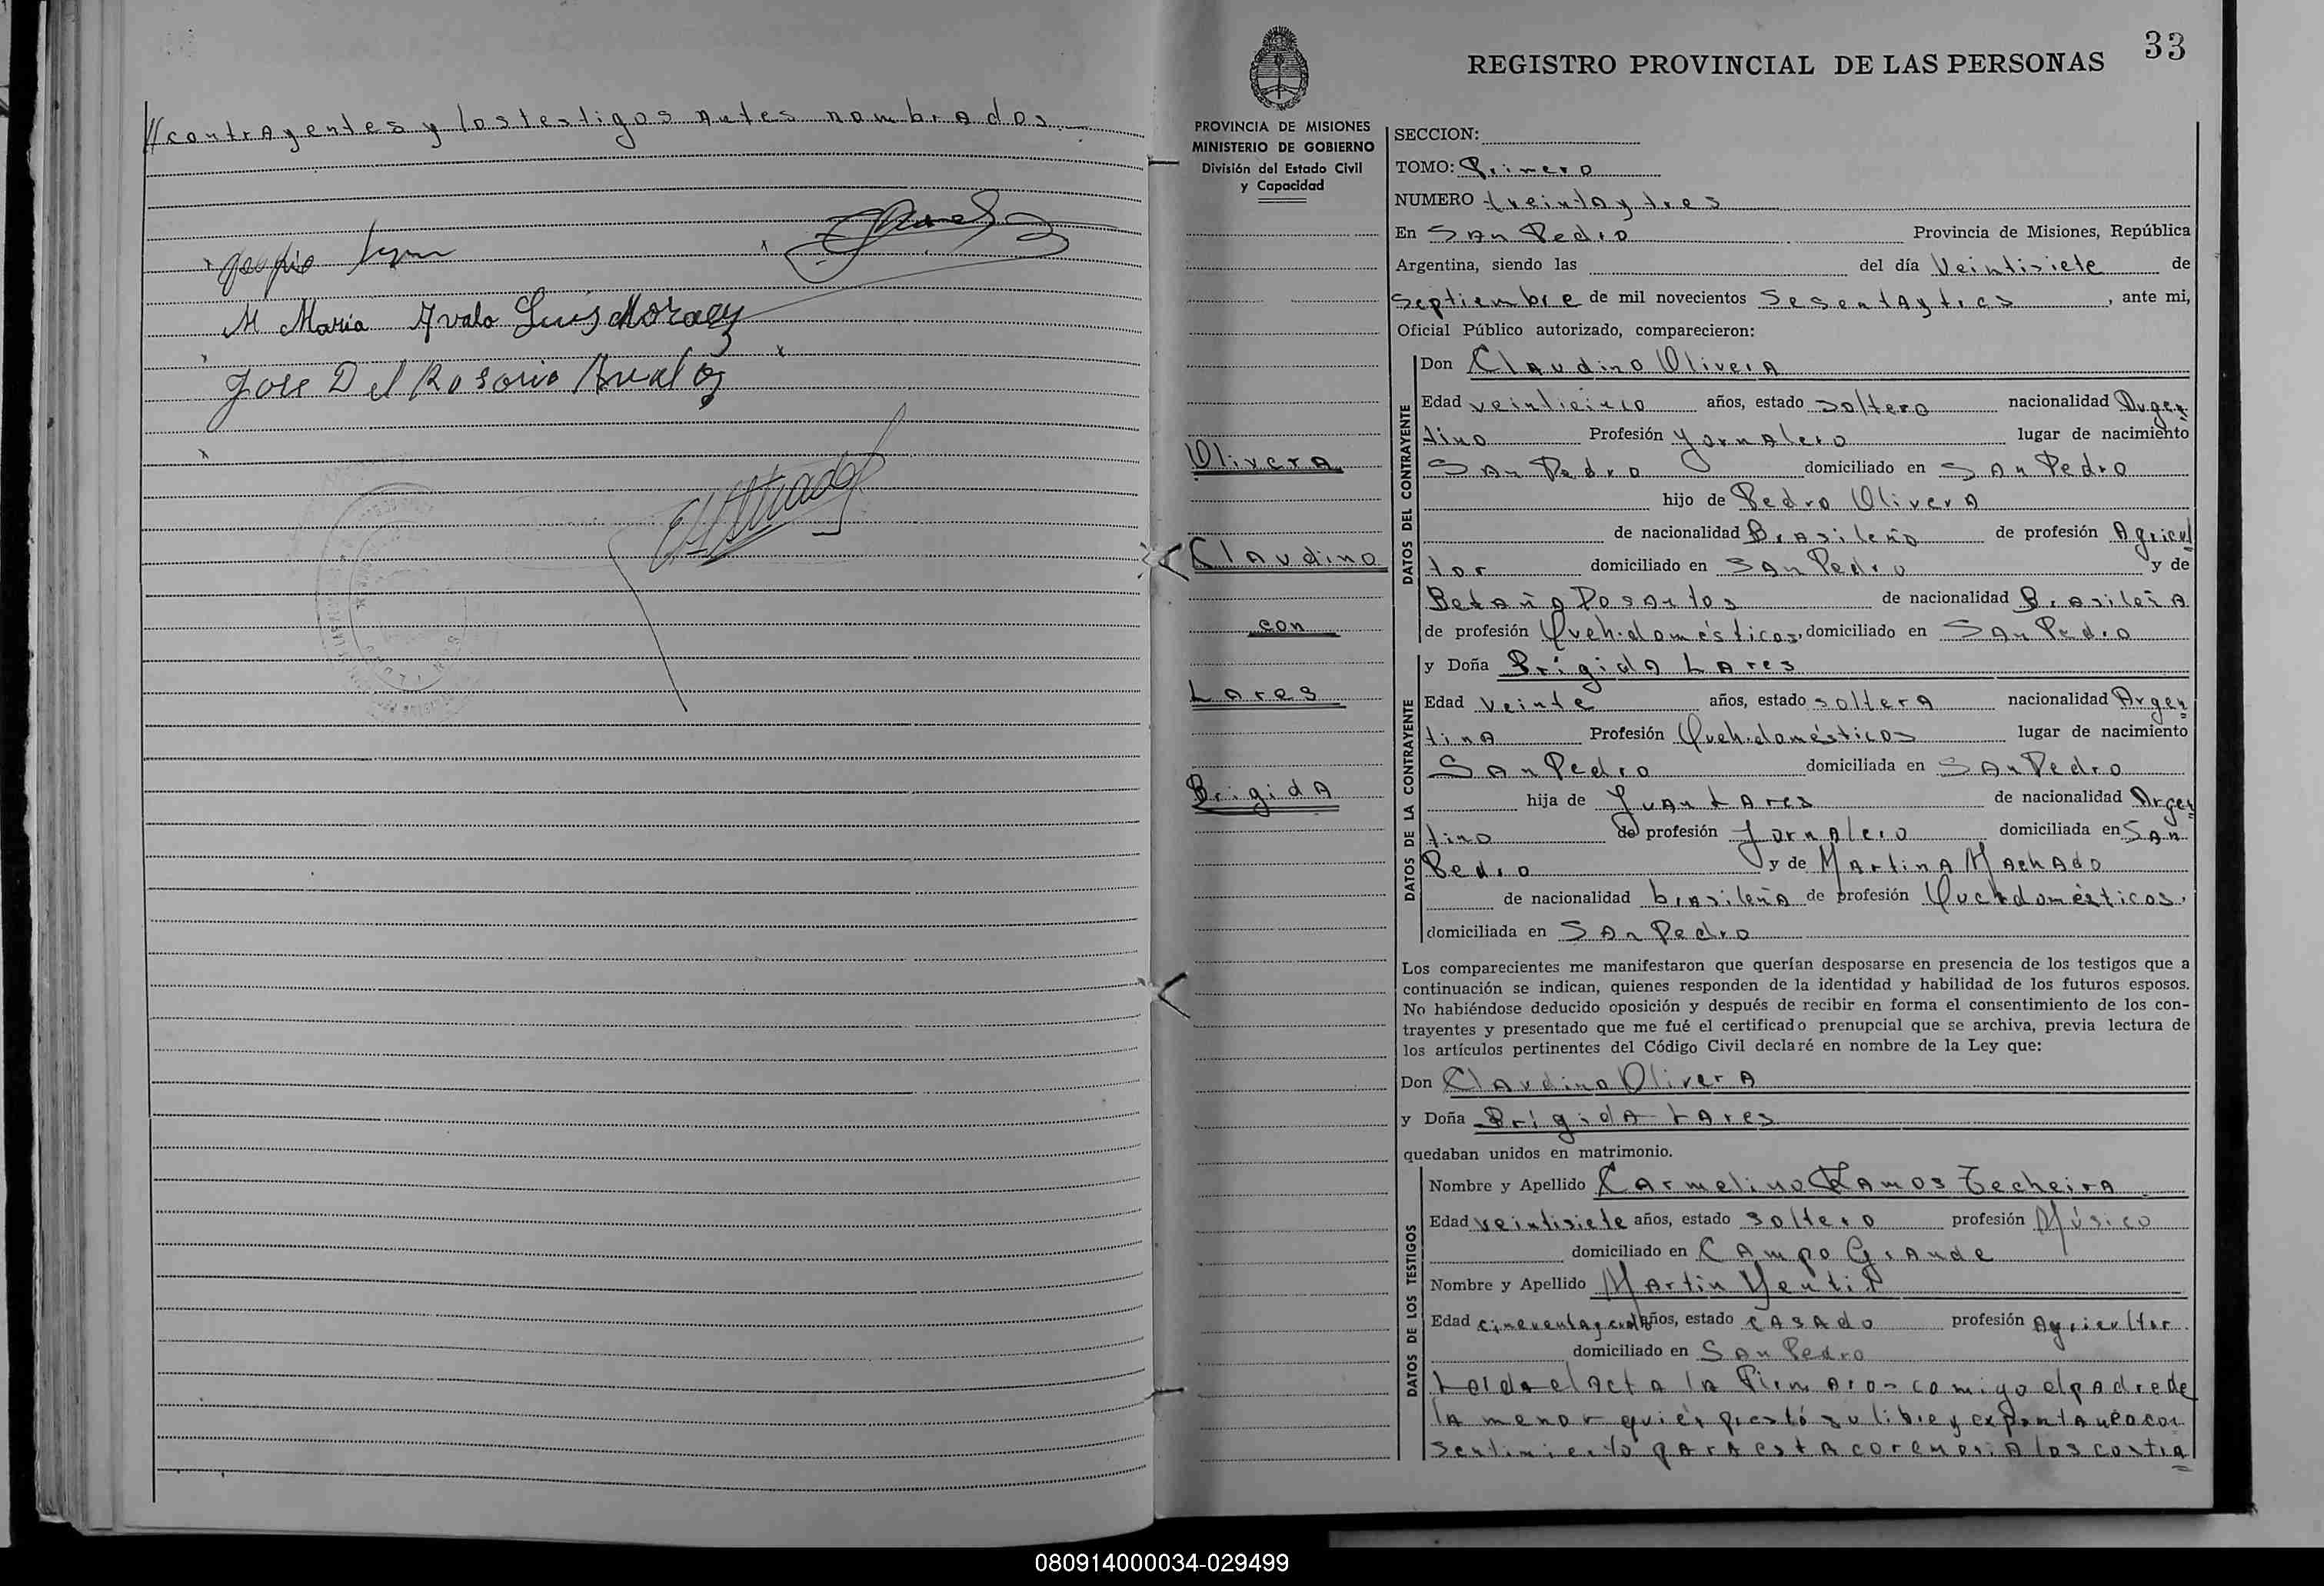 //contrayentes y los testigos antes nombrados.—
M Maria Avalo Luis Moraez
Jose Del Rosario Avalos
33
REGISTRO PROVINCIAL DE LAS PERSONAS
PROVINCIA DE MISIONES
MINISTERIO DE GOBIERNO
División del Estado Civil
y Capacidad
Olivera
Claudino
con
Lares
Brigida
SECCION:
TOMO: Primero
NUMERO treinta y tres
En San Pedro Provincia de Misiones, República
Argentina, siendo las del día Veintisiete de
Septiembre de mil novecientos Sesenta y tres, ante mi,
Oficial Público autorizado, comparecieron:
DATOS DEL CONTRAYENTE
Don Claudino Olivera
Edad veinticinco años, estado soltero nacionalidad Argen
tino Profesión Jornalero lugar de nacimiento
San Pedro domiciliado en San Pedro
hijo de Pedro Olivera
de nacionalidad Brasileño de profesión Agricul
tor domiciliado en San Pedro y de
Betaña Dosantos de nacionalidad Brasileña
de profesión Queh.domésticos, domiciliado en San Pedro
DATOS DE LA CONTRAYENTE
y Doña Brígida Lares
Edad veinte años, estado soltera nacionalidad Argen
tina Profesión Queh.domésticos lugar de nacimiento
San Pedro domiciliada en San Pedro
hija de Juan Lares de nacionalidad Argen
tino de profesión Jornalero domiciliada en San
Pedro y de Martina Machado
de nacionalidad brasileña de profesión Queh.domésticos,
domiciliada en San Pedro
Los comparecientes me manifestaron que querían desposarse en presencia de los testigos que a
continuación se indican, quienes responden de la identidad y habilidad de los futuros esposos.
No habiéndose deducido oposición y después de recibir en forma el consentimiento de los con-
trayentes y presentado que me fué el certificado prenupcial que se archiva, previa lectura de
los artículos pertinentes del Código Civil declaré en nombre de la Ley que:
Don Claudino Olivera
y Doña Brígida Lares
quedaban unidos en matrimonio.
DATOS DE LOS TESTIGOS
Nombre y Apellido Carmelino Ramos Techeira
Edad veintisiete años, estado soltero profesión Músico
domiciliado en Campo Grande
Nombre y Apellido Martin Yentil
Edad años, estado casado profesión Agricultor
domiciliado en San Pedro
Leida el acta la firmaron comigo el padre de
la menor quién prestó su libre y expontaneo con
sentimiento para esta ceremonia los contra
080914000034-029499